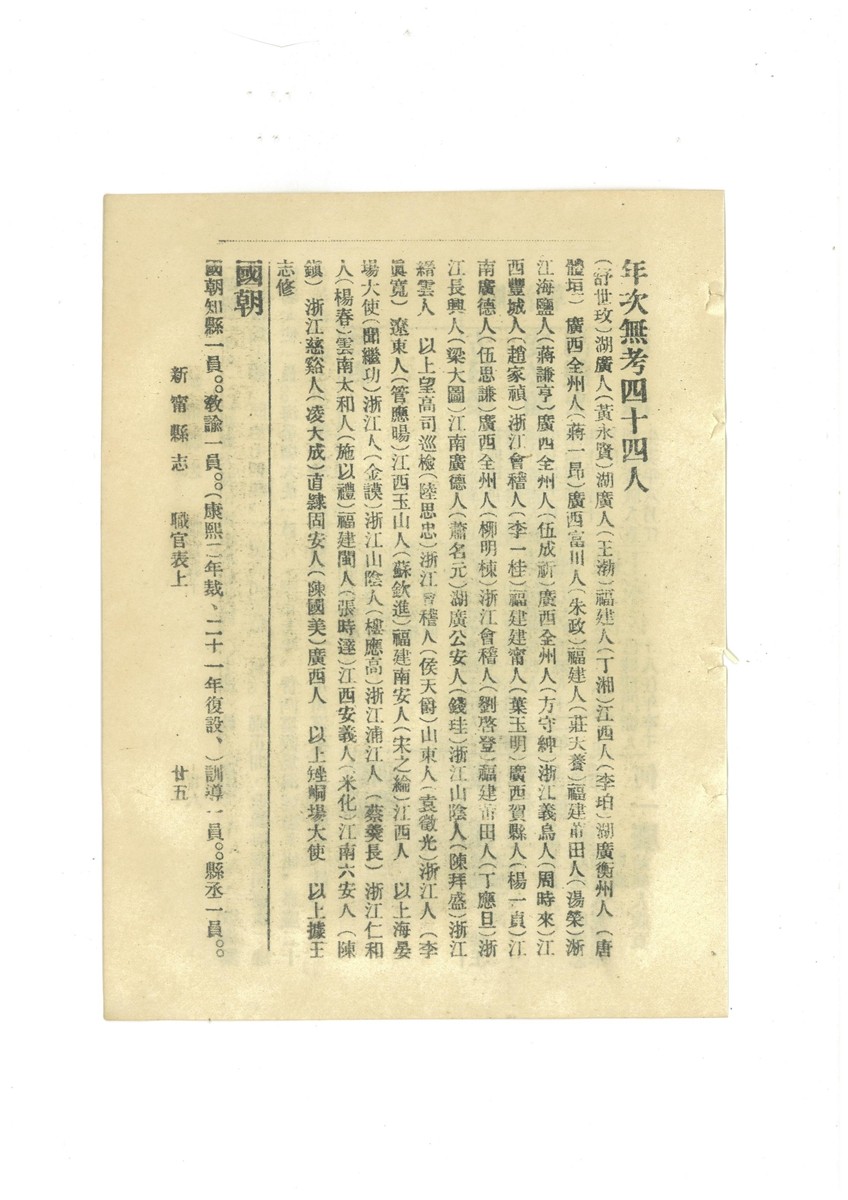 年次無考四十四人
(舒世玫)湖廣人(黃永賢)湖廣人(王渤)福建人(丁湘)江西人(李珀)湖廣衡州人 (唐
體垣) 廣西全州人(蔣一昂)廣西富川人(朱政)福建人(莊大養)福建莆田人(湯榮)浙
江海鹽人(蔣謙亨)廣西全州人(伍成新)廣西全州人(方守紳)浙江義烏人(周時來)江
西豐城人(趙家禎)浙江會稽人(李一桂)福建建甯人(葉玉明)廣西賀縣人(楊一貞)江
南廣德人(伍思謙)廣西全州人(柳明棟)浙江會稽人(劉啓登)福建莆田人(丁應旦)浙
江長興人(梁大圖)江南廣德人(蕭名元)湖廣公安人(錢珪)浙江山陰人(陳拜盛)浙江
縉雲人 以上望高司巡檢(陸思忠)浙江會稽人(侯天爵)山東人(袁徵光)浙江人(李
眞寬)遼東人(管應暘)江西玉山人(蘇欽進)福建南安人(宋之綸)江西人 以上海晏
場大使(聞繼功)浙江人(金謨)浙江山陰人(樓應高)浙江浦江人(蔡奠長) 浙江仁和
人(楊春)雲南太和人(施以禮)福建閩人(張時達)江西安義人(米化)江南六安人(陳
鎮) 浙江慈谿人(凌大成)直隸固安人(陳國美)廣西人 以上矬峒場大使 以上據王
志修
國朝
國朝知縣一員。。敎諭一員。。(康熙二年裁、二十一年復設、)訓導一員。。縣丞一員。。
新甯縣志 職官表上 廿五